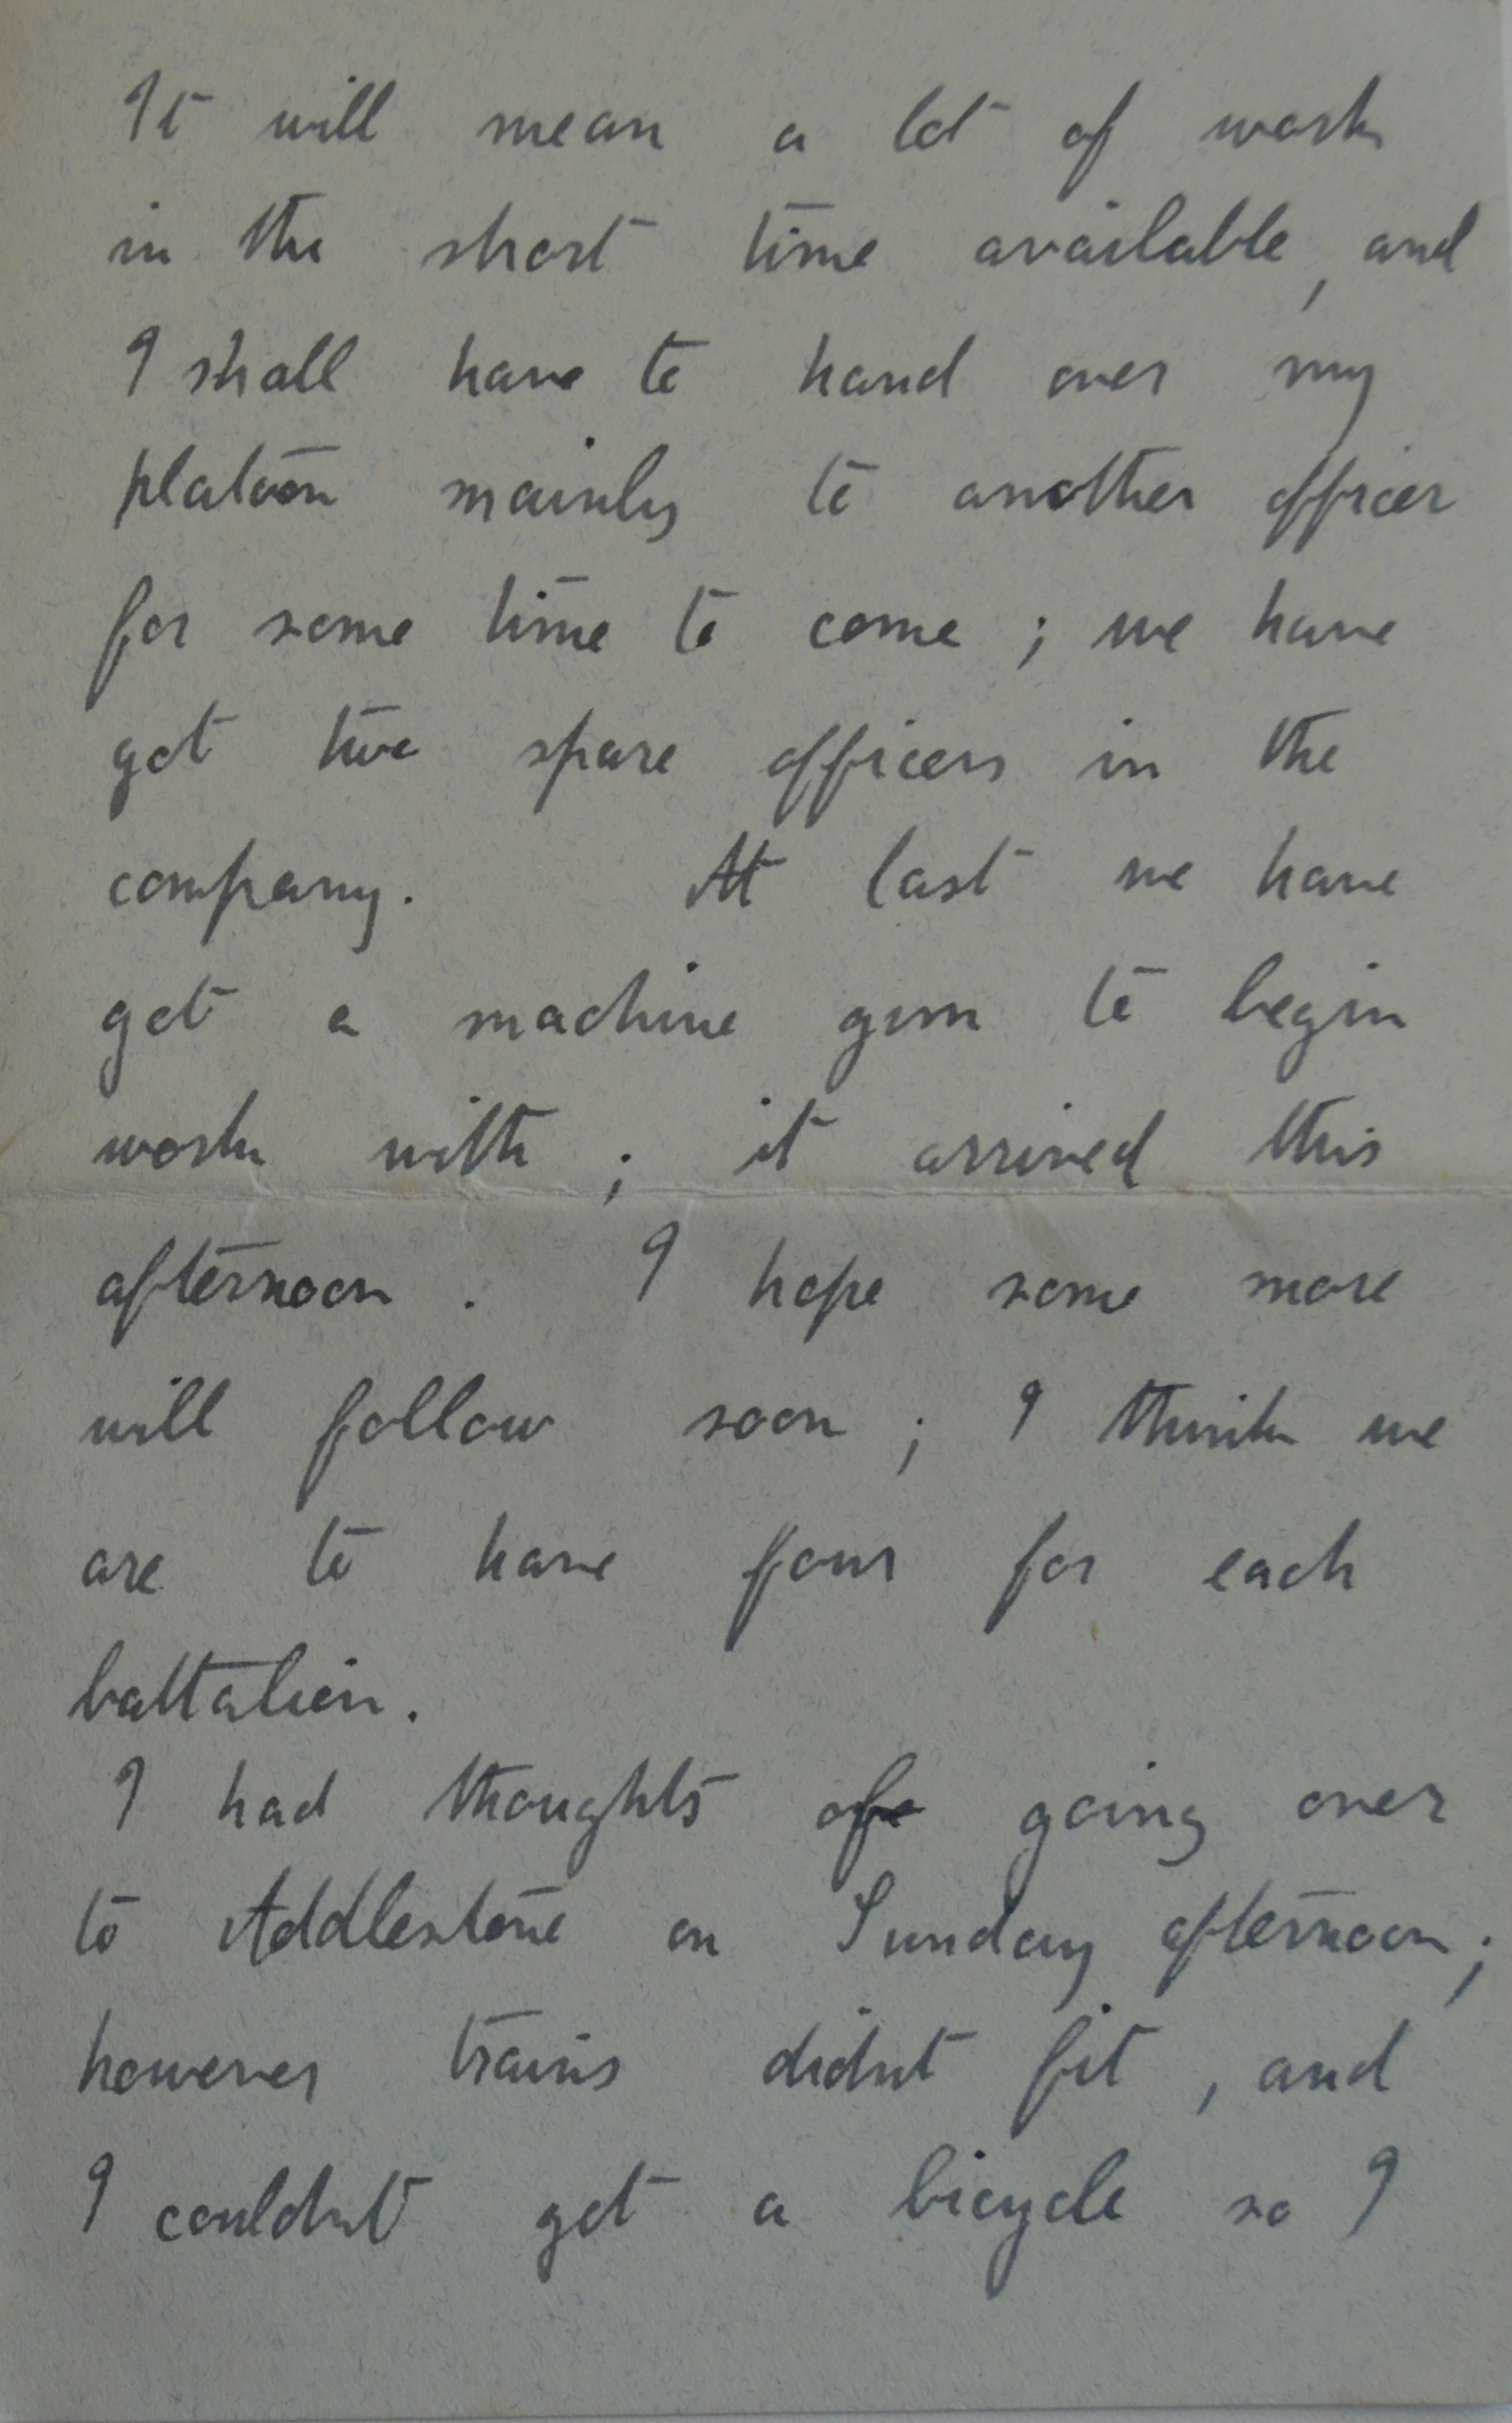 It will mean a lot of work
in the short time available, and
I shall have to hand over my
platoon mainly to another officer
for some time to come ; we have
got two spare officers in the
company. At last we have
got a machine gun to begin
work with ; it arrived this
afternoon . I hope some more
will follow soon ; I think we
are to have four for each
battalion.
I had thoughts of going over
to Addlestone on Sunday afternoon ;
however trains didnt fit , and
I couldnt get a bicycle so I